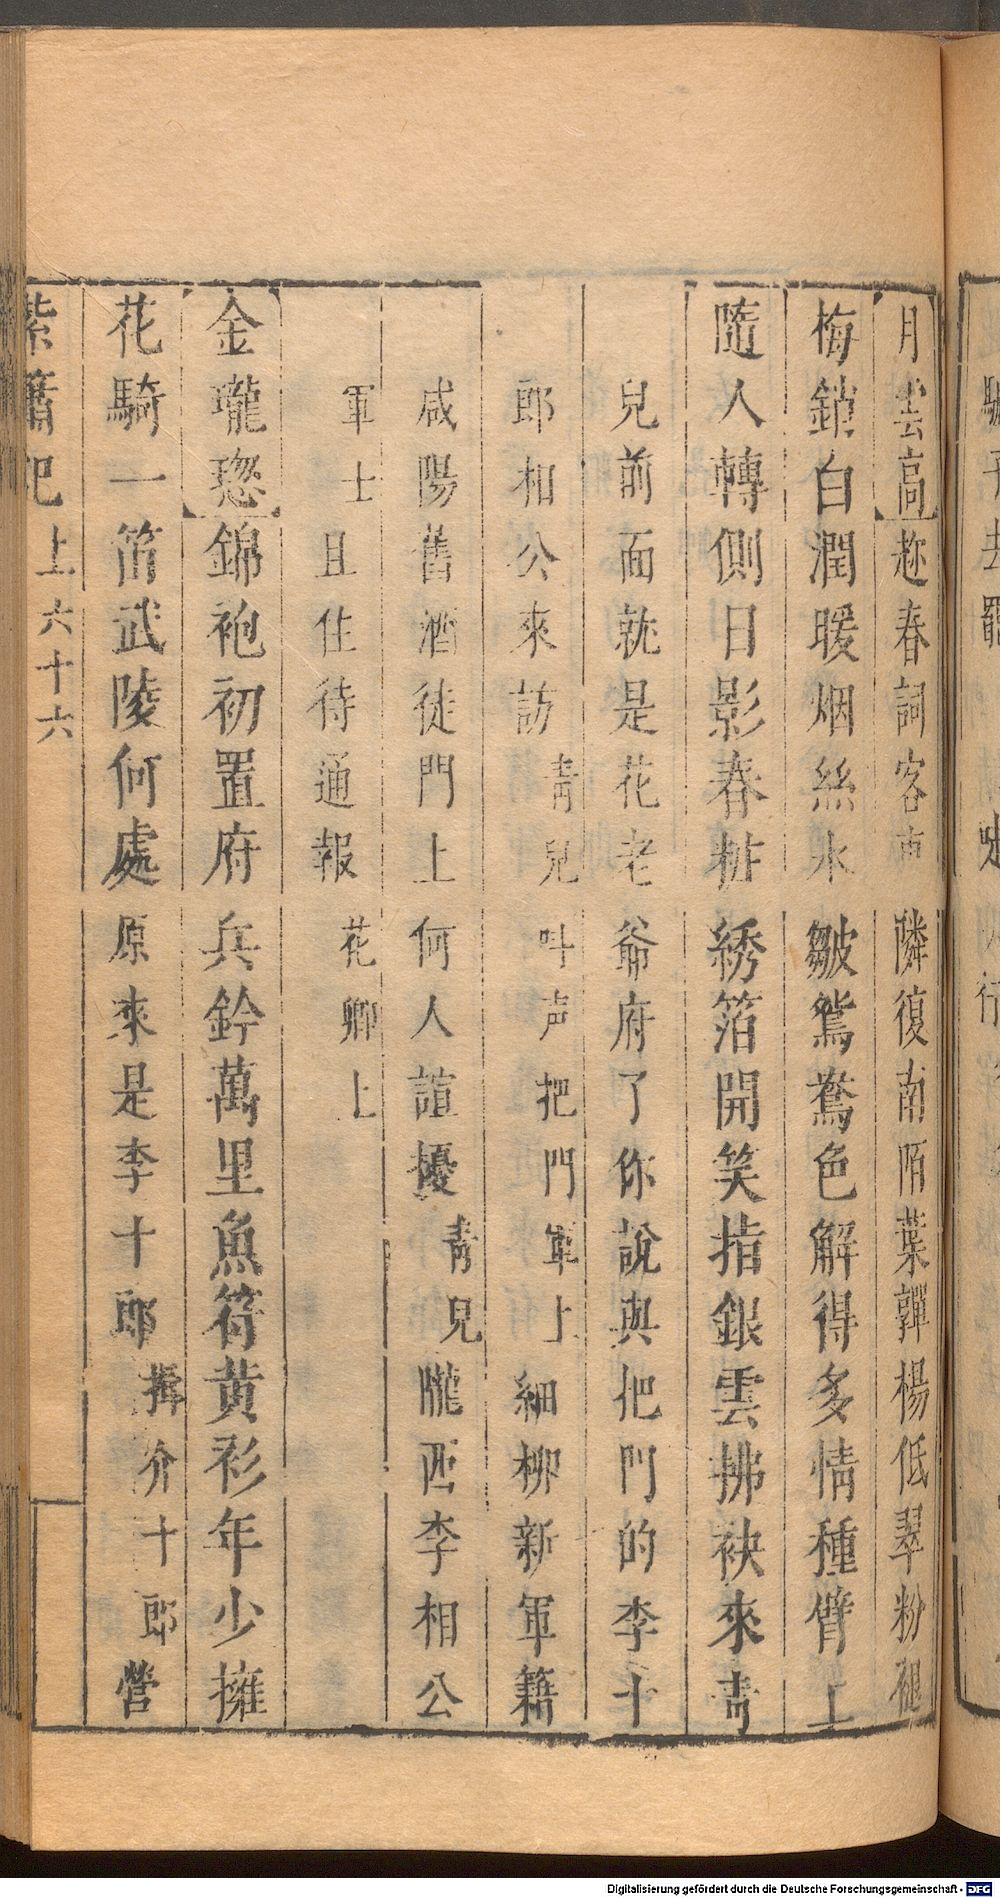 月雲高趂春詞客市隣復南陌葉嚲楊低翠粉褪
梅銷白潤暖烟絲水皺鴛鴦色解得多情種臂上
隨人轉側日影春粧綉箔開笑指銀雲拂袂來青
兒前面就是花老爺府了你說與把門的李十
郎相公來訪青兒叫声把門軍上細柳新軍籍
咸陽舊酒徒門上何人諠擾青兒隴西李相公
軍士且住待通報花卿上
金瓏璁錦袍初置府兵鈐萬里魚符黄衫年少擁
花騎一笛武陵何處原來是李十郎揖介十郎營
紫簫記上六十六
Digitalisierung gefördert durch die Deutsche Forschungsgemeinschaft - DFG